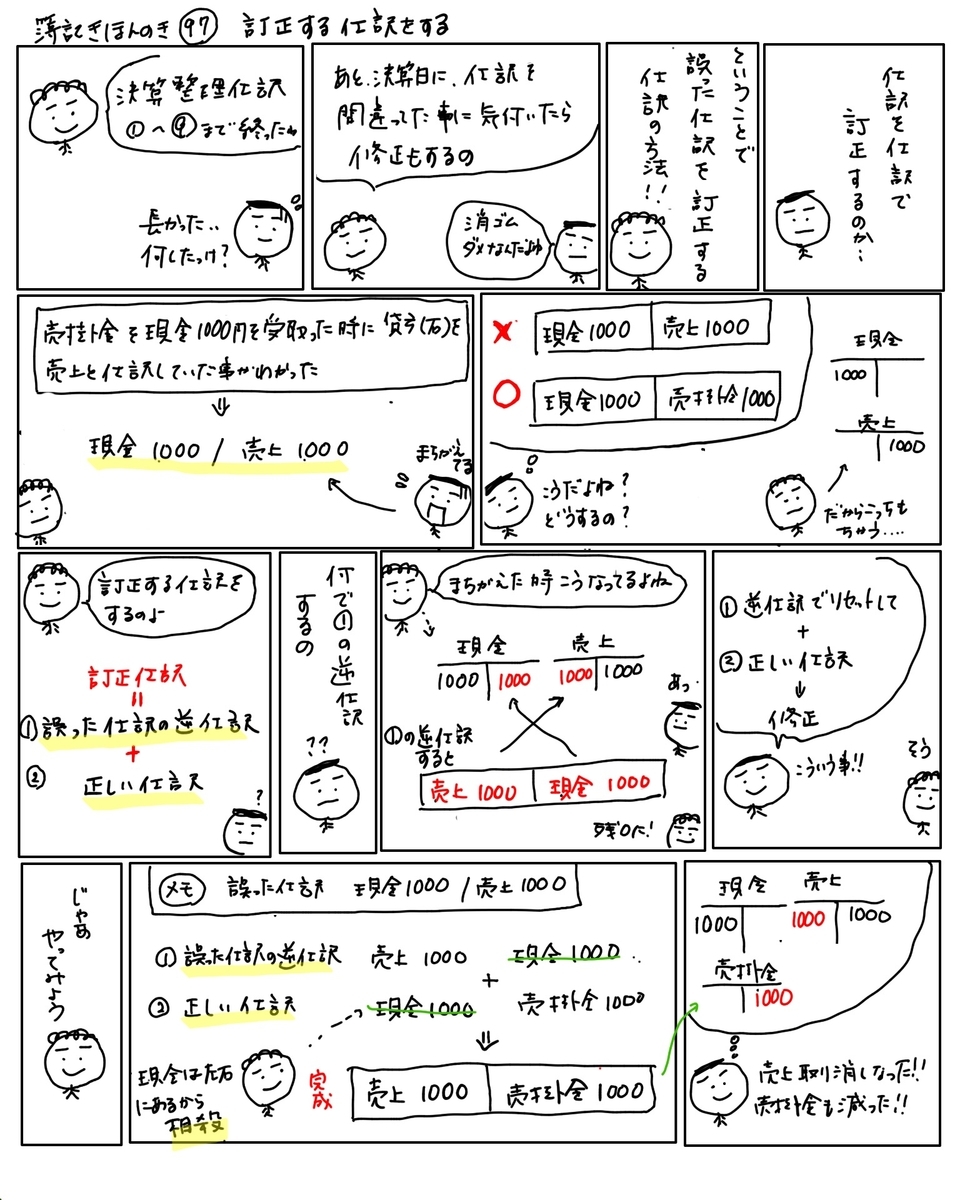 簿記きほんのき 97 訂正する仕訳をする
決算整理仕訳
①〜⑨まで終ったね
長かった..
何したっけ?
あと、決算日に、仕訳を
間違ってた事に気付いたら
修正もするの
消ゴム
ダメなんだよね
ということで
誤った仕訳を訂正する
仕訳の方法!!
仕訳を仕訳で
訂正するのか…
売掛金を現金1000円を受取った時に貸方(右)を
売上と仕訳していた事がわかった
⇓
現金 1000 / 売上 1000
まちがえ
てる
× 現金1000 売上1000
○ 現金1000 売掛金1000
こうだよね?
どうするの?
現金
1000
売上
1000
だからこっちも
ちゃう....
訂正する仕訳を
するのよ
訂正仕訳
=
①誤った仕訳の逆仕訳
+
② 正しい仕訳
?
何で①の逆仕訳
するの
??
まちがえた時こうなってるよね
現金 売上
1000 1000 1000 1000
①の逆仕訳
すると
売上 1000 現金 1000
あっ
残0に!
①逆仕訳でリセットして
+
②正しい仕訳
↓
修正
こういう事!!
そう
じゃあ
やってみよう
メモ 誤った仕訳 現金1000 / 売上1000
① 誤った仕訳の逆仕訳 売上 1000 現金 1000
+
② 正しい仕訳 現金1000 売掛金1000
⇓
現金は左右
にあるから
相殺
完成
売上 1000 売掛金 1000
現金 売上
1000 1000 1000
売掛金
1000
売上取り消しなった!!
売掛金も減った!!